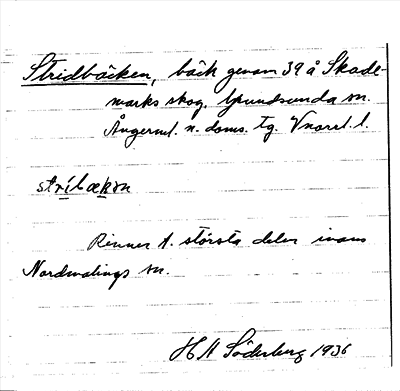 Stridbäcken, bäck genom 39 å Skade-
marks skog. Grundsunda sn.
Ångerml. n. doms. tg. Vnorrl. l.
stríbækən
Rinner t. största delen inom
Nordmalings sn.
H Söderberg 1936